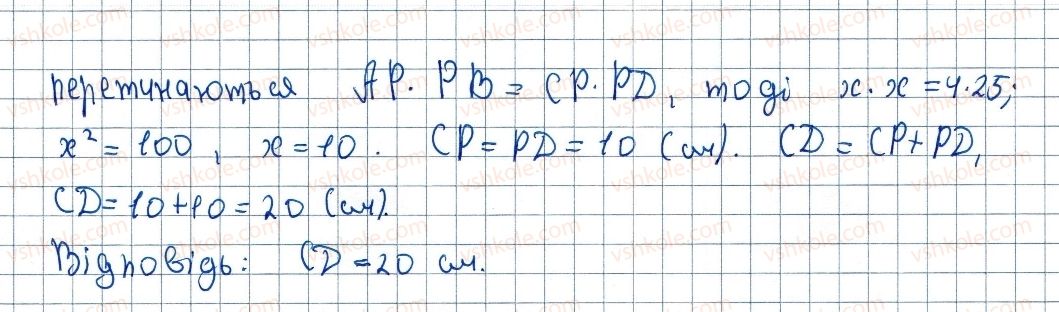 перетинаються AP · PB = CP · PD, тоді x · x = 4 · 25;
x² = 100, x = 10. CP = PD = 10 (см). CD = CP + PD,
CD = 10 + 10 = 20 (см).
Відповідь: CD = 20 см.